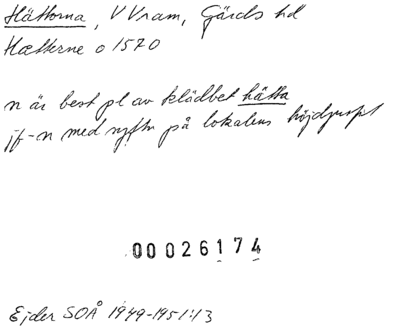 Hättorna, V Vram, Gärds hd
Hætterne o 1570
n är best pl av klädbet hätta
jfr-n med syftn på lokalens höjdpunkt
00026174
Ejder SOÅ 1949-1951:13